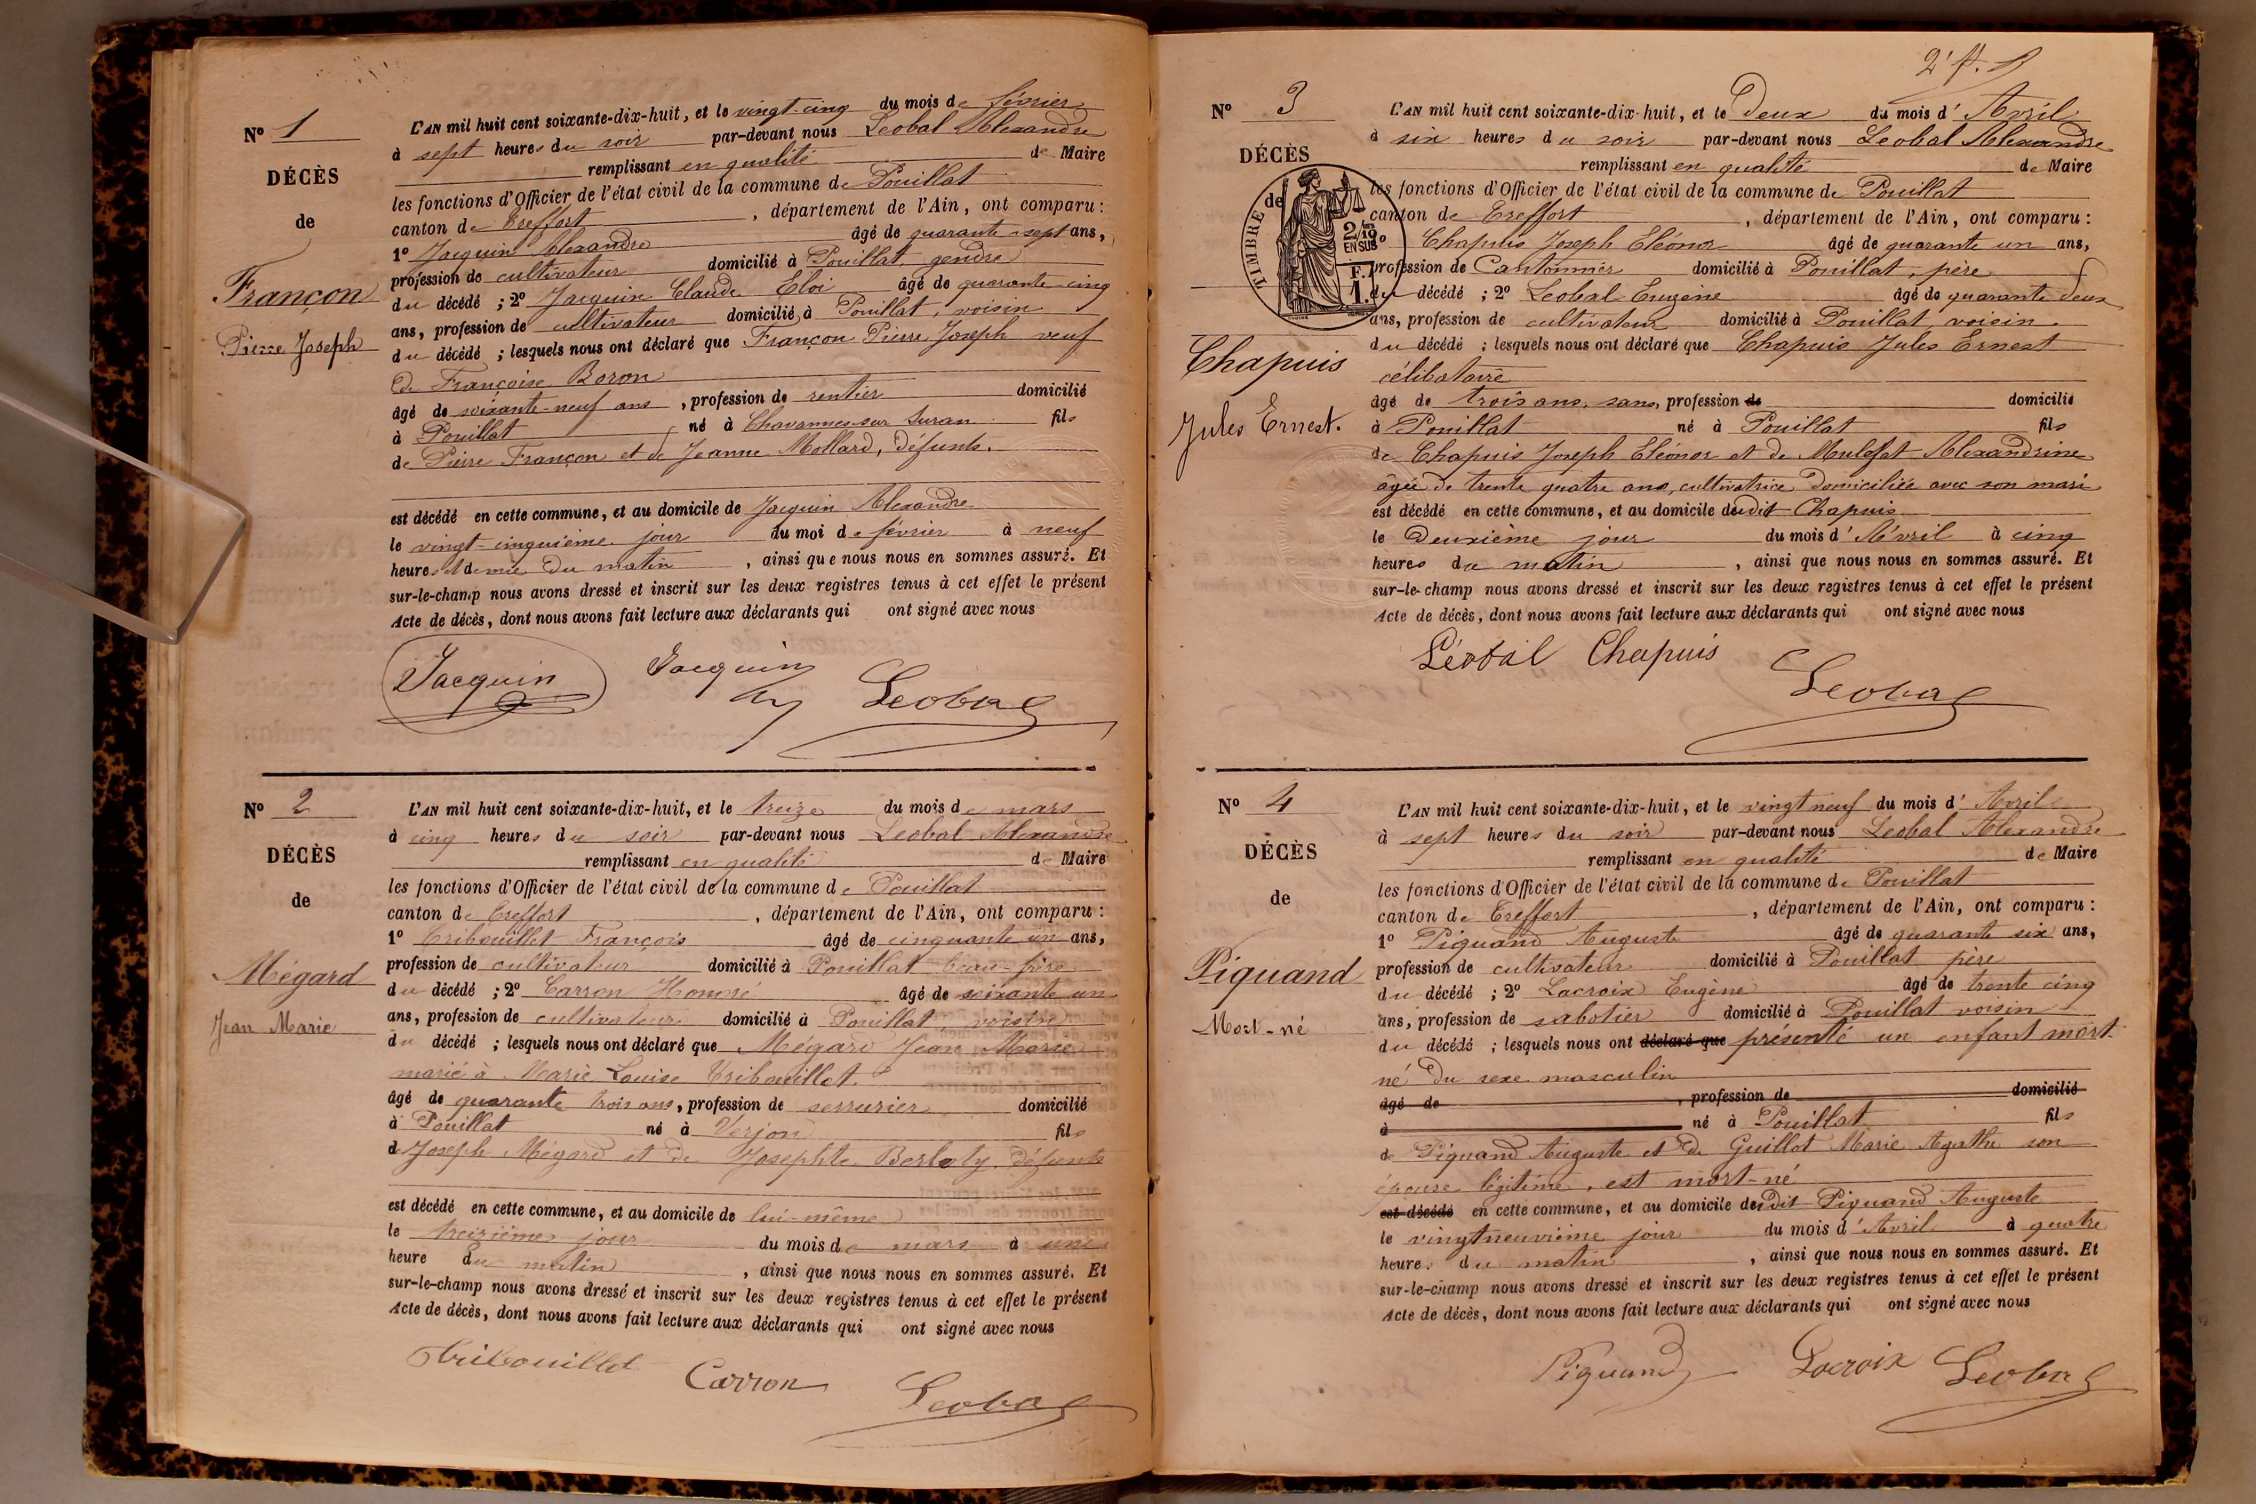 N° 1
DÉCÈS
de
Françon
Pierre Joseph
L'AN mil huit cent soixante-dix-huit, et le vingt-cinq du mois de février
à sept heures du soir par-devant nous Leobal Alexandre
remplissant en qualité de Maire
les fonctions d'Officier de l'état civil de la commune de Pouillat
canton de Treffort , département de l'Ain, ont comparu :
1° Jacquin Alexandre âgé de quarante-sept ans,
profession de cultivateur domicilié à Pouillat, gendre
du décédé ; 2° Jacquin Claude Eloi âgé de quarante-cinq
ans, profession de cultivateur domicilié à Pouillat, voisin
du décédé ; lesquels nous ont déclaré que Françon Pierre Joseph veuf
de Françoise Boron
âgé de soixante-neuf ans , profession de rentier domicilié
à Pouillat né à Chavannes-sur Suran fils
de Pierre Françon et de Jeanne Mollard, défunts.
est décédé en cette commune, et au domicile de Jacquin Alexandre
le vingt-cinquième jour du moi de février à neuf
heures et demie du matin , ainsi que nous nous en sommes assuré. Et
sur-le-champ nous avons dressé et inscrit sur les deux registres tenus à cet effet le présent
Acte de décès, dont nous avons fait lecture aux déclarants qui ont signé avec nous
Jacquin Jacquin Leobal
N° 2
DÉCÈS
de
Mégard
Jean Marie
L'AN mil huit cent soixante-dix-huit, et le treize du mois de mars
à cinq heures du soir par-devant nous Leobal Alexandre
remplissant en qualité de Maire
les fonctions d'Officier de l'état civil de la commune de Pouillat
canton de Treffort , département de l'Ain, ont comparu :
1° Tribouillet François âgé de cinquante un ans,
profession de cultivateur domicilié à Pouillat beau-frère
du décédé ; 2° Carron Honoré âgé de soixante un
ans, profession de cultivateur domicilié à Pouillat voisin
du décédé ; lesquels nous ont déclaré que Mégard Jean Marie
marié à Marie Louise Tribouillet.
âgé de quarante trois ans, profession de serrurier domicilié
à Pouillat né à Verjon fils
de Joseph Mégard et de Josephte défunts
est décédé en cette commune, et au domicile de lui-même
le treizième jour du mois de mars à une
heure du matin , ainsi que nous nous en sommes assuré. Et
sur-le-champ nous avons dressé et inscrit sur les deux registres tenus à cet effet le présent
Acte de décès, dont nous avons fait lecture aux déclarants qui ont signé avec nous
Tribouillet Carron Leobal
N° 3
DÉCÈS
de
TIMBRE
2/10es
EN SUS
F.
1.
Chapuis
Jules Ernest.
L'AN mil huit cent soixante-dix-huit, et le Deux du mois d'Avril
à six heures du soir par-devant nous Leobal Alexandre
remplissant en qualité de Maire
les fonctions d'Officier de l'état civil de la commune de Pouillat
canton de Treffort , département de l'Ain, ont comparu :
Chapuis Joseph Eléonor âgé de quarante un ans,
profession de Cantonnier domicilié à Pouillat, père
du décédé ; 2° Leobal Eugène âgé de quarante deux
ans, profession de cultivateur domicilié à Pouillat voisin
du décédé ; lesquels nous ont déclaré que Chapuis Jules Ernest
célibataire
âgé de trois ans, sans, profession de domicilié
à Pouillat né à Pouillat fils
de Chapuis Joseph Eléonor et de Mulefat Alexandrine
agée de trente quatre ans, cultivatrice domiciliée avec son mari
est décédé en cette commune, et au domicile dudit Chapuis
le Deuxième jour du mois d'Avril à cinq
heures du matin , ainsi que nous nous en sommes assuré. Et
sur-le-champ nous avons dressé et inscrit sur les deux registres tenus à cet effet le présent
Acte de décès, dont nous avons fait lecture aux déclarants qui ont signé avec nous
Léobal Chapuis Leobal
N° 4
DÉCÈS
de
Piquand
Mort-né
L'AN mil huit cent soixante-dix-huit, et le vingt neuf du mois d'Avril
à sept heures du soir par-devant nous Leobal Alexandre
remplissant en qualité de Maire
les fonctions d'Officier de l'état civil de la commune de Pouillat
canton de Treffort , département de l'Ain, ont comparu :
1° Piquand Auguste âgé de quarante six ans,
profession de cultivateur domicilié à Pouillat père
du décédé ; 2° Lacroix Eugène âgé de trente cinq
ans, profession de sabotier domicilié à Pouillat voisin
du décédé ; lesquels nous ont déclaré que présenté un enfant mort-
né du sexe masculin
âgé de , profession de domicilié
à né à Pouillat fils
de Piquand Auguste et de Guillot Marie Agathe son
épouse légitime, est mort-né
est décédé en cette commune, et au domicile dudit Piquand Auguste
le vingtneuvième jour du mois d'Avril à quatre
heures du matin , ainsi que nous nous en sommes assuré. Et
sur-le-champ nous avons dressé et inscrit sur les deux registres tenus à cet effet le présent
Acte de décès, dont nous avons fait lecture aux déclarants qui ont signé avec nous
Piquand Lacroix Leobal